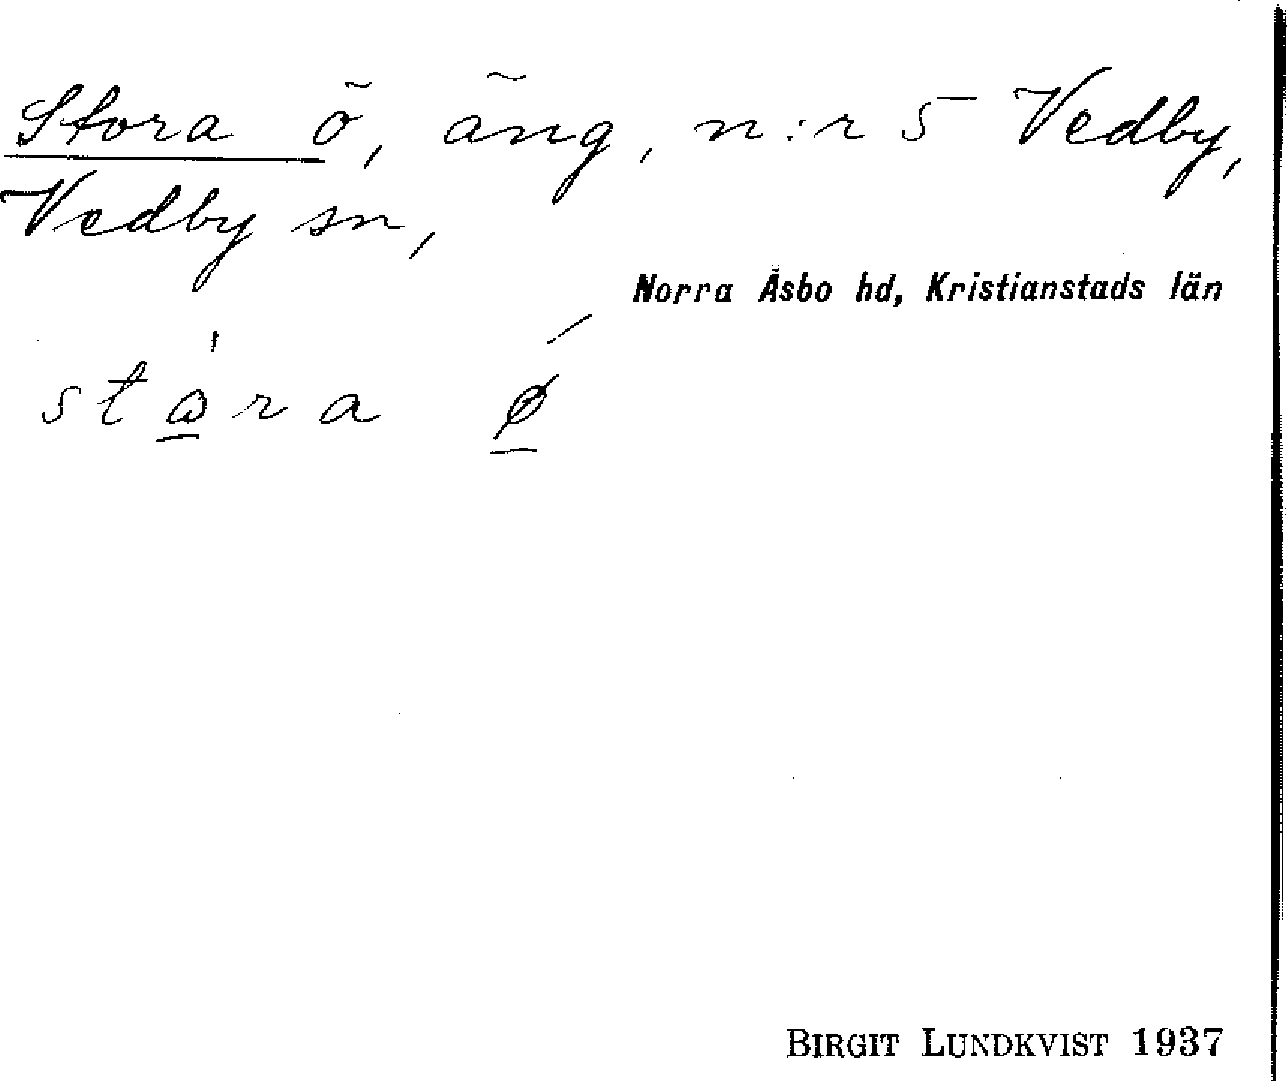 Stora ö, äng, n:r 5 Vedby,
Vedby sn,
Norra Åsbo hd, Kristianstads län
stὼ̲ra ǿ̲
BIRGIT LUNDKVIST 1937